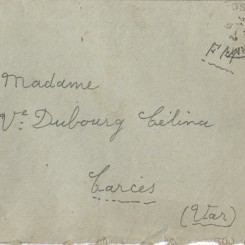 Madame
Vᵉ Dubourg Célina
Carcès
(Var)